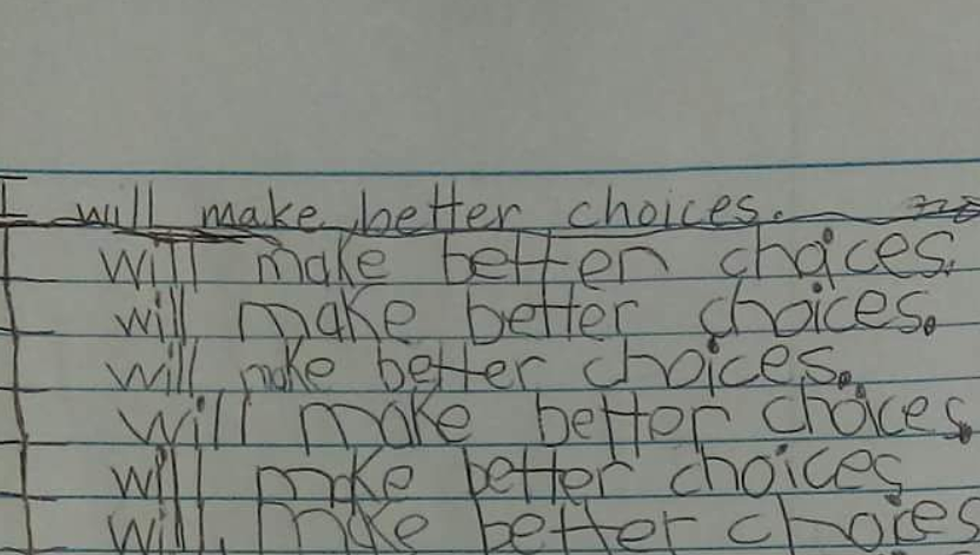 I will make better choices.
I will make better choices.
I will make better choices.
I will make better choices.
I will make better choices.
I will make better choices
I will make better choices